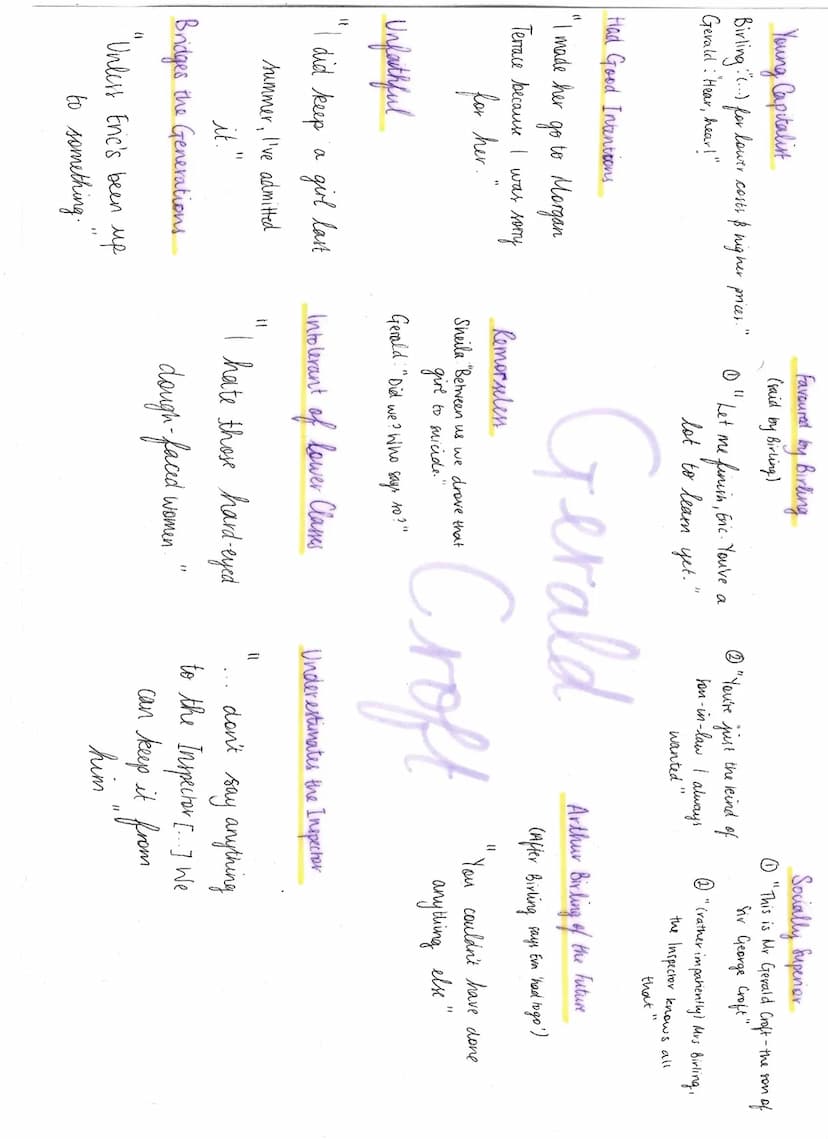 Young Capitalist
Birling: "(...) for lower costs & higher prices."
Gerald: "Hear, hear!"
Favoured by Birling
(said by Birling)
① "Let me finish, Eric. You've a
lot to learn yet."
② "You're just the kind of
son-in-law I always
wanted"
Socially Superior
① "This is Mr Gerald Croft - the son of
Sir George Croft"
② "(rather impatiently) Mrs Birling,
the Inspector knows all
that"
Had Good Intentions
"I made her go to Morgan
Terrace because I was sorry
for her."
Gerald
Croft
Arthur Birling of the Future
(After Birling says Eva 'had to go')
"You couldn't have done
anything else"
Unfaithful
"I did keep a girl last
summer, I've admitted
it."
Remorseless
Sheila "Between us we drove that
girl to suicide."
Gerald: "Did we? Who says so?"
Bridges the Generations
"Unless Eric's been up
to something."
Intolerant of Lower Classes
"I hate those hard-eyed
dough-faced women."
Underestimates the Inspector
"... don't say anything
to the Inspector [...] We
can keep it from
him"